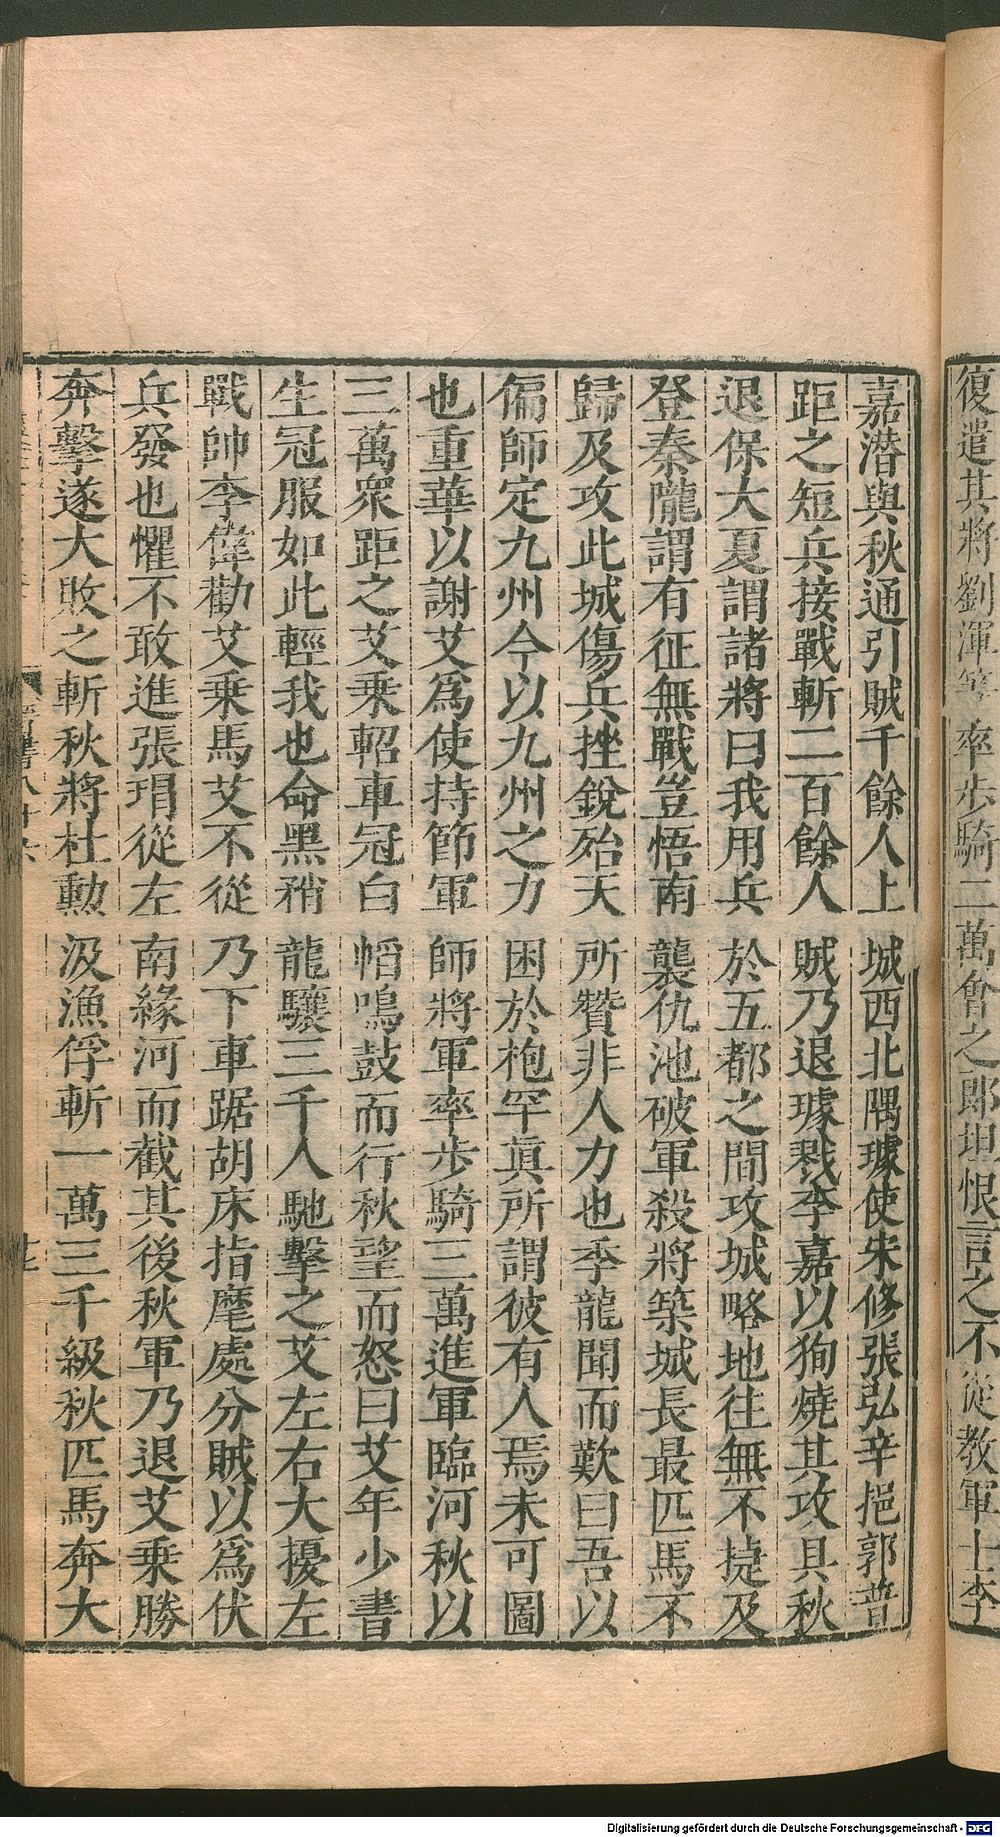 復遣其將劉渾等率步騎二萬會之郎坦恨言之不從教軍士李
嘉潛與秋通引賊千餘人上城西北隅璩使宋修張弘辛挹郭普
距之短兵接戰斬二百餘人賊乃退璩戮李嘉以狥燒其攻具秋
退保大夏謂諸將曰我用兵於五都之間攻城略地往無不捷及
登秦隴謂有征無戰豈悟南襲仇池破軍殺將築城長最匹馬不
歸及攻此城傷兵挫銳殆天所贊非人力也季龍聞而歎曰吾以
偏師定九州今以九州之力困於枹罕眞所謂彼有人焉未可圖
也重華以謝艾爲使持節軍師將軍率步騎三萬進軍臨河秋以
三萬衆距之艾乘軺車冠白幍鳴鼓而行秋望而怒曰艾年少書
生冠服如此輕我也命黑矟龍驤三千人馳擊之艾左右大擾左
戰帥李偉勸艾乘馬艾不從乃下車踞胡床指麾處分賊以爲伏
兵發也懼不敢進張瑁從左南緣河而截其後秋軍乃退艾乘勝
奔擊遂大敗之斬秋將杜勳汲漁俘斬一萬三千級秋匹馬奔大
Digitalisierung gefördert durch die Deutsche Forschungsgemeinschaft - DFG